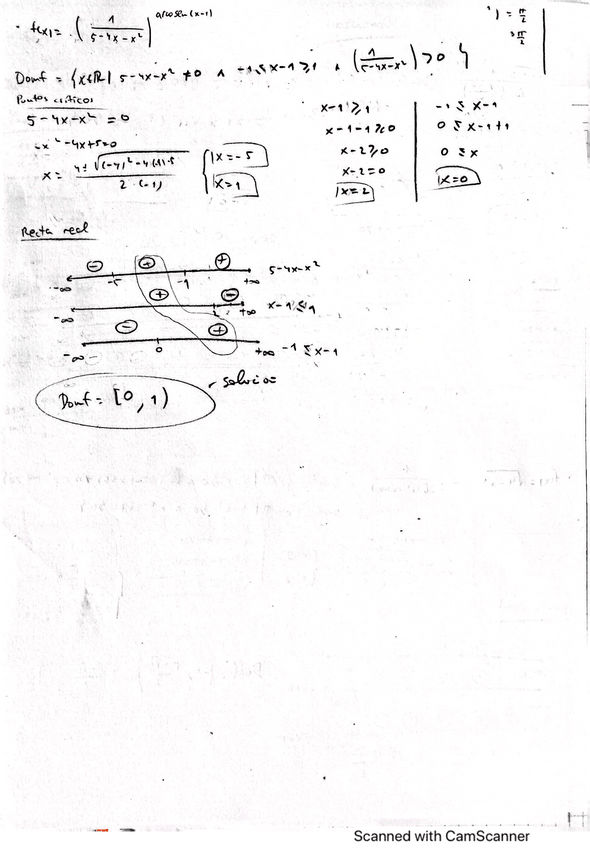 · f(x) = (1/(5-4x-x²))^arcosen(x-1)
Domf = {x∈ℝ| 5-4x-x² ≠0 ∧ -1≤x-1≥1 ∧ (1/(5-4x-x²))>0}
Puntos criticos
5-4x-x² =0
-x²-4x+5=0
x= (4±√((-4)²-4·(-1)·5))/(2·(-1)) { x=-5
x=1
x-1≥1
x-1-1≥0
x-2≥0
x-2=0
x=2
-1≤x-1
0≤x-1+1
0≤x
x=0
Recta real
⊖ ⊕ ⊕
-∞ -5 -1 +∞ 5-4x-x²
⊕ ⊖
-∞ 2 +∞ x-1≤1
⊖ ⊕
-∞ 0 +∞ -1≤x-1
Domf = [0,1)
) = π/2
π/2
Scanned with CamScanner